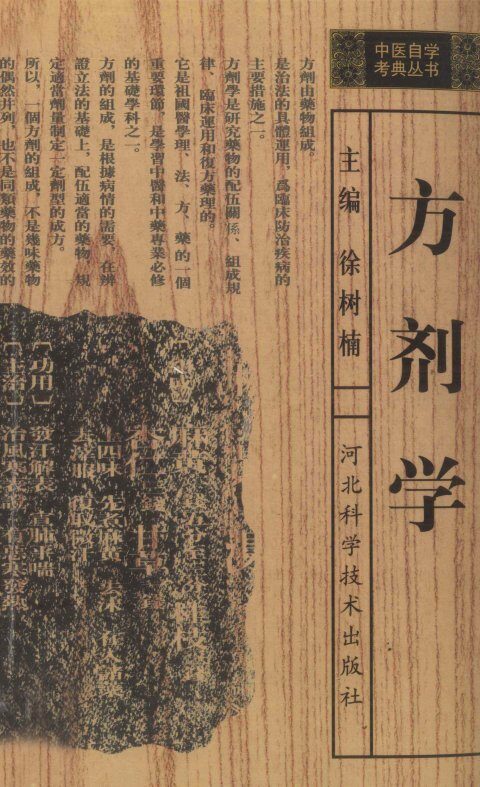 中医自学
考典丛书
方剂学
主编 徐树楠
河北科学技术出版社
方劑由藥物組成。
是治法的具體運用，爲臨床防治疾病的
主要措施之一。
方劑學是研究藥物的配伍關係、組成規
律、臨床運用和復方藥理的。
它是祖國醫學理、法、方、藥的一個
重要環節，是學習中醫和中藥專業必修
的基礎學科之一。
方劑的組成，是根據病情的需要，在辨
證立法的基礎上，配伍適當的藥物，規
定適當劑量制定一定劑型的成方。
所以，一個方劑的組成，不是幾味藥物
的偶然并列，也不是同類藥物的藥效的
麻黄
甘草
四味 先煮麻黄
〔功用〕發汗解表 宣肺平喘
〔主治〕治風寒表證